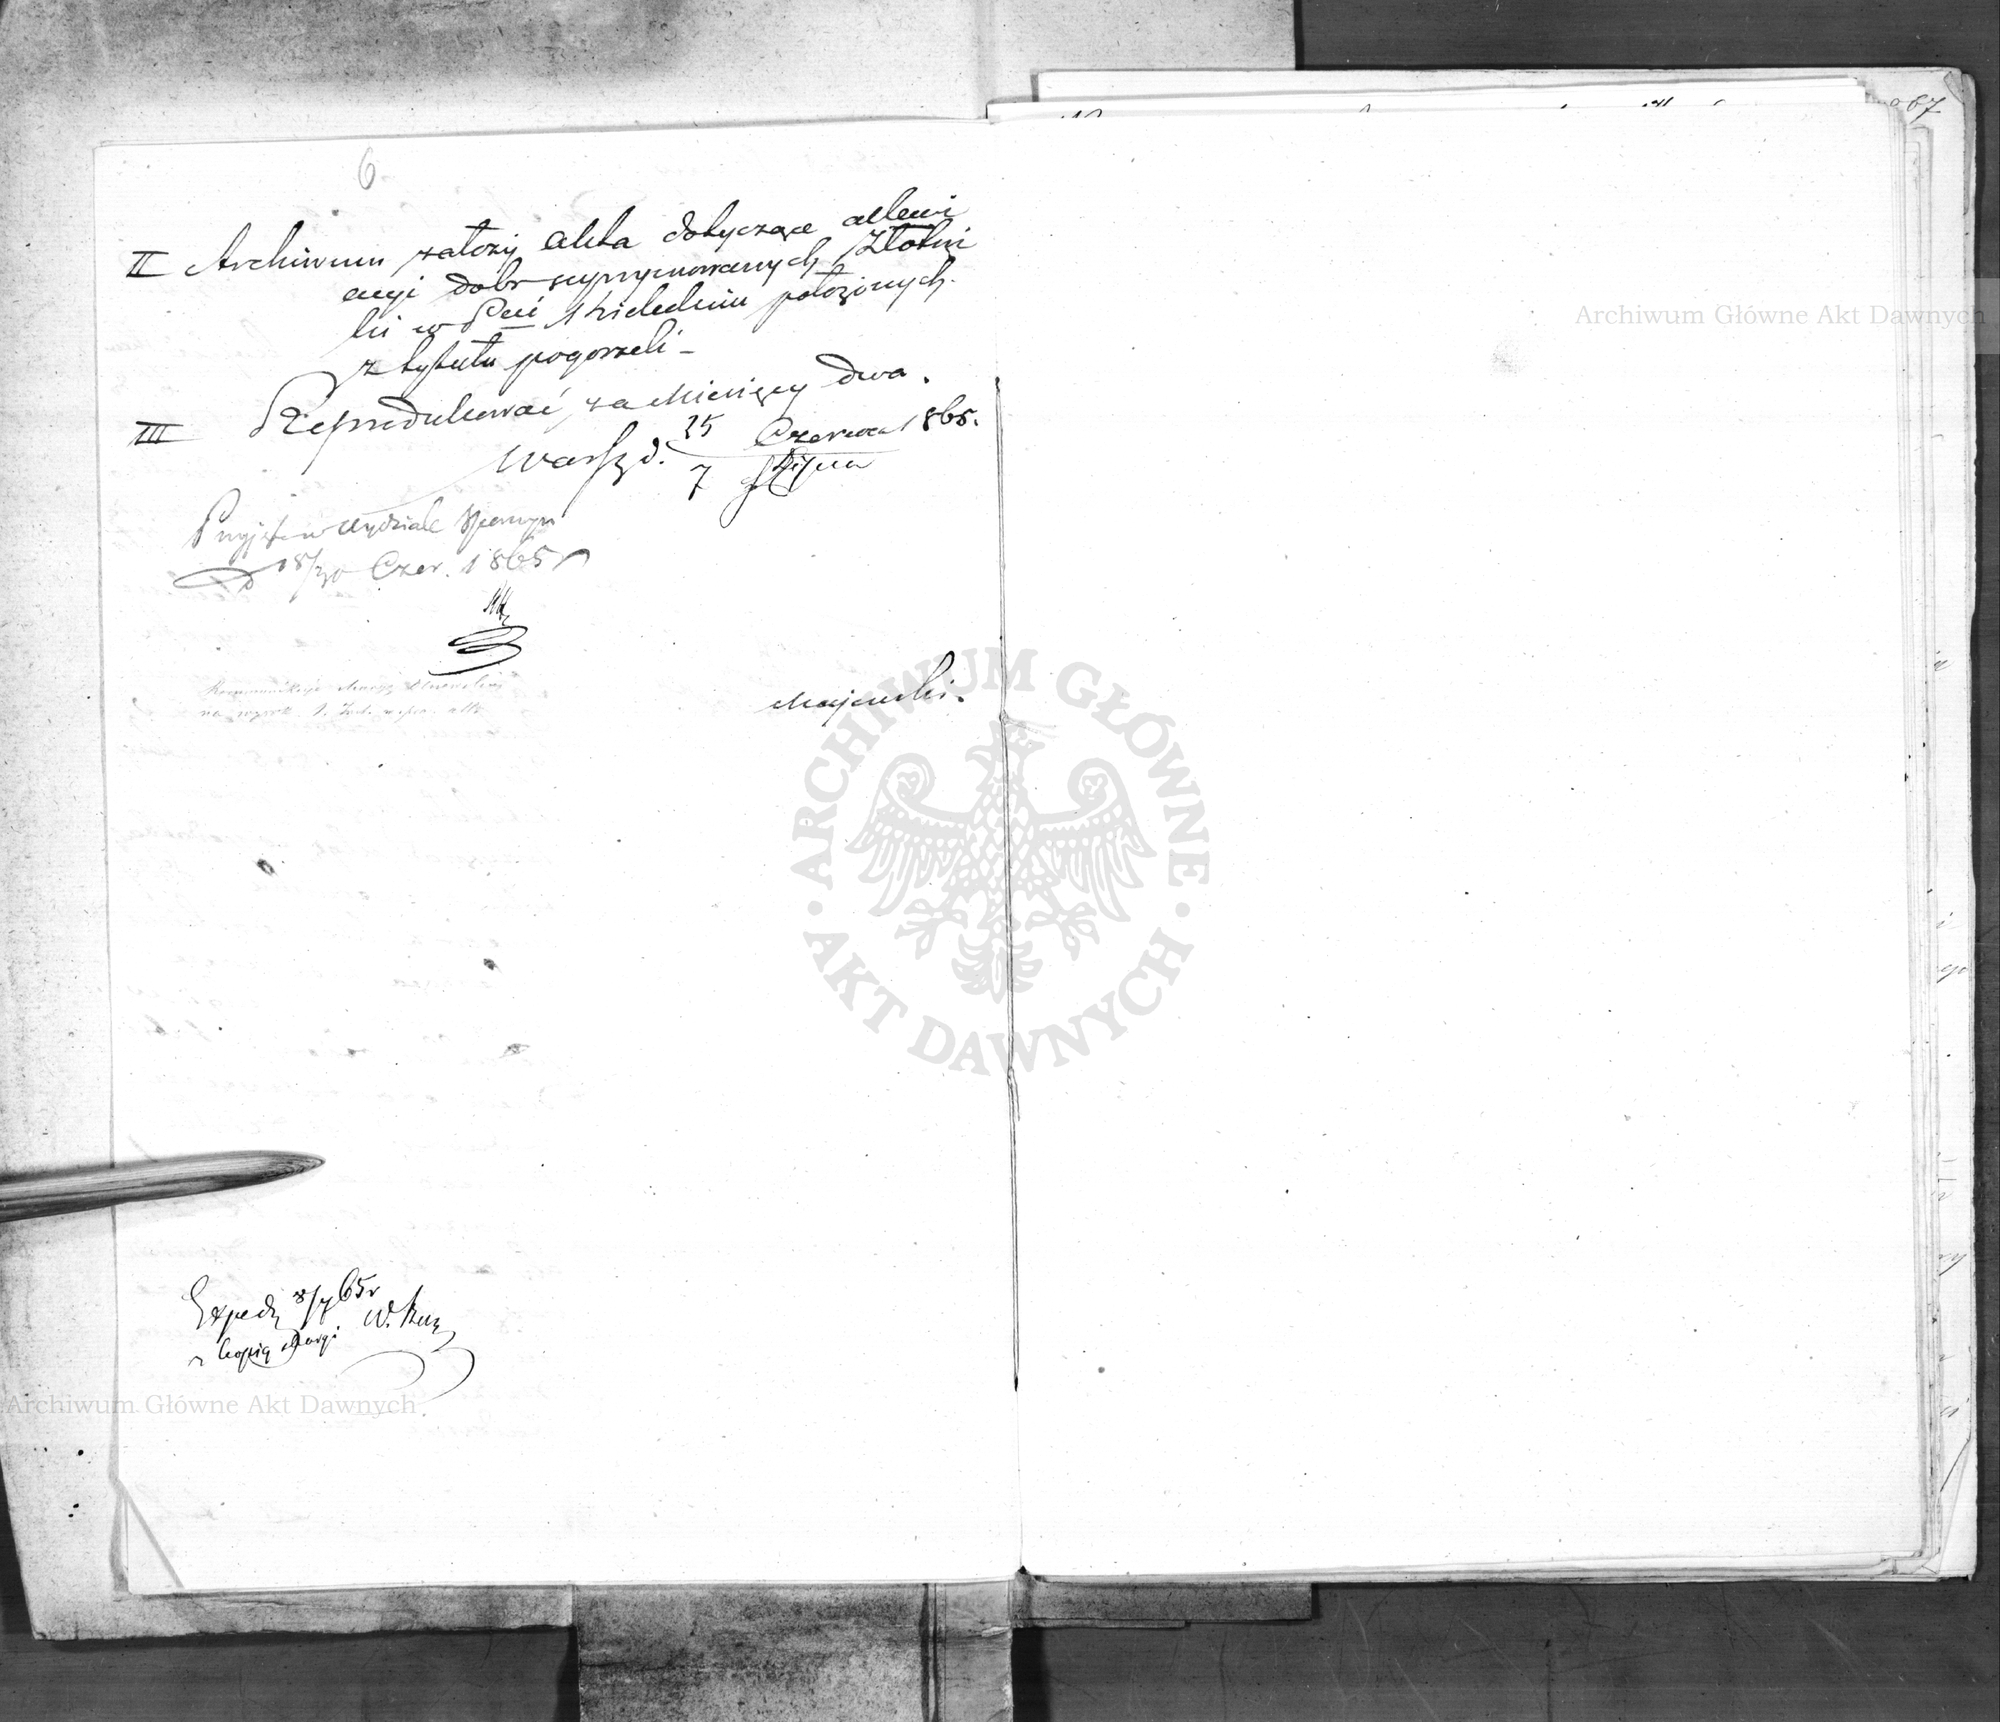 6
67
II Archiwum założy Akta dotyczące allewi
acyi dobr suprymowanych Złotni
ki w Pcie Kieleckim położonych.
z tytułu pogorzeli –
III Reprodukować, za Miesięcy dwa.
Warsz. d. 25 Czerwca 1865.
7 Lipca
Przyjęto w Wydziale
d 18/30 Czer. 1865 r
Majewski.
Exped. 8/7 65 r
z kopią
Archiwum Główne Akt Dawnych
Archiwum Główne Akt Dawnych
ARCHIWUM GŁÓWNE AKT DAWNYCH